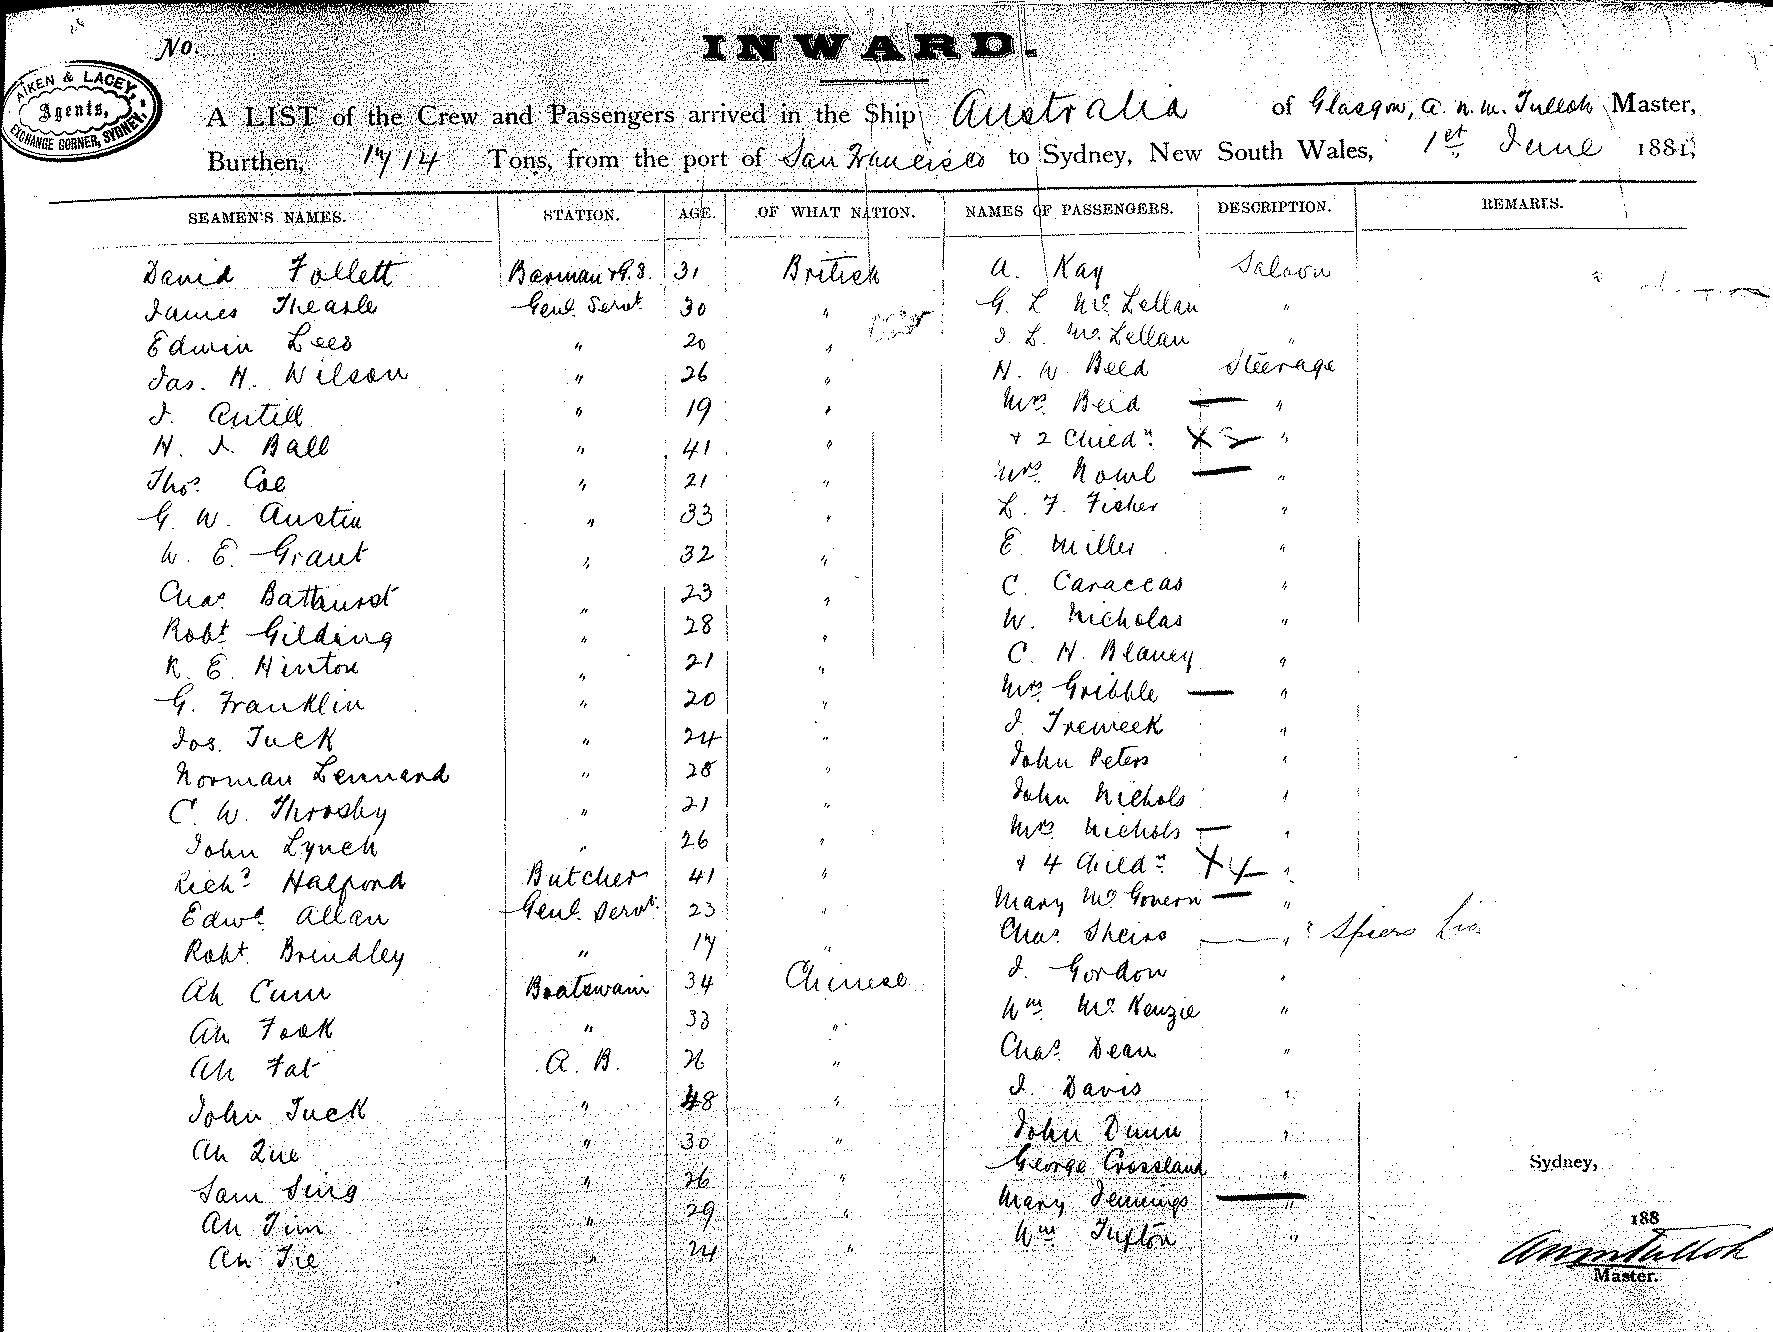 No.
INWARD.
AIKEN & LACEY,
Agents,
EXCHANGE CORNER, SYDNEY.
A LIST of the Crew and Passengers arrived in the Ship Australia of Glasgow, A. n. m. Tulloh Master,
Burthen, 1714 Tons, from the port of San Francisco to Sydney, New South Wales, 1st June 1881,
SEAMEN'S NAMES. STATION. AGE. OF WHAT NATION. NAMES OF PASSENGERS. DESCRIPTION. REMARKS.
David Follett Barman & G.S. 31 British A. Kay Saloon
James Theasle Genl. Servt 30 " G L McLellan "
Edwin Lees " 20 " J. L. McLellan "
Jas. H. Wilson " 26 " H. W. Beed Steerage
J. Antill " 19 " Mrs Beed "
H. J. Ball " 41 " + 2 Childn X 2 "
Thos. Coe " 21 " Mrs "
G. W. Austin " 33 " L. F. Fisher "
W. E. Grant " 32 " E Miller "
Chas. Bathurst " 23 " C. Caraccas "
Robt Gilding " 28 " W. Nicholas "
R. E. Hinton " 21 " C. H. Blaney "
G. Franklin " 20 " Mrs Gribble "
Jos. Tuck " 24 " J. Treweek "
Norman Lennard " 28 " John Peters "
C. W. Throsby " 21 " John Nichols "
John Lynch " 26 " Mrs Nichols "
Richd Halford Butcher 41 " + 4 Childn X 4 "
Edwd. Allan Genl. Servt. 23 " Mary McGovern "
Robt. Brindley " 17 " Chas. Speirs " ? Spiers
Ah Cum Boatswain 34 Chinese J. Gordon "
Ah Fook " 33 " Wm. McKenzie "
Ah Fat A. B. 26 " Chas. Dean "
John Tuck " 48 " J. Davis "
Ah Que " 30 " John Dunn "
Sam Sing " 26 " George Crossland "
Ah Tim " 29 " Mary Jennings "
Ah Tie " 24 " Wm Tufton "
Sydney,
188
Master.